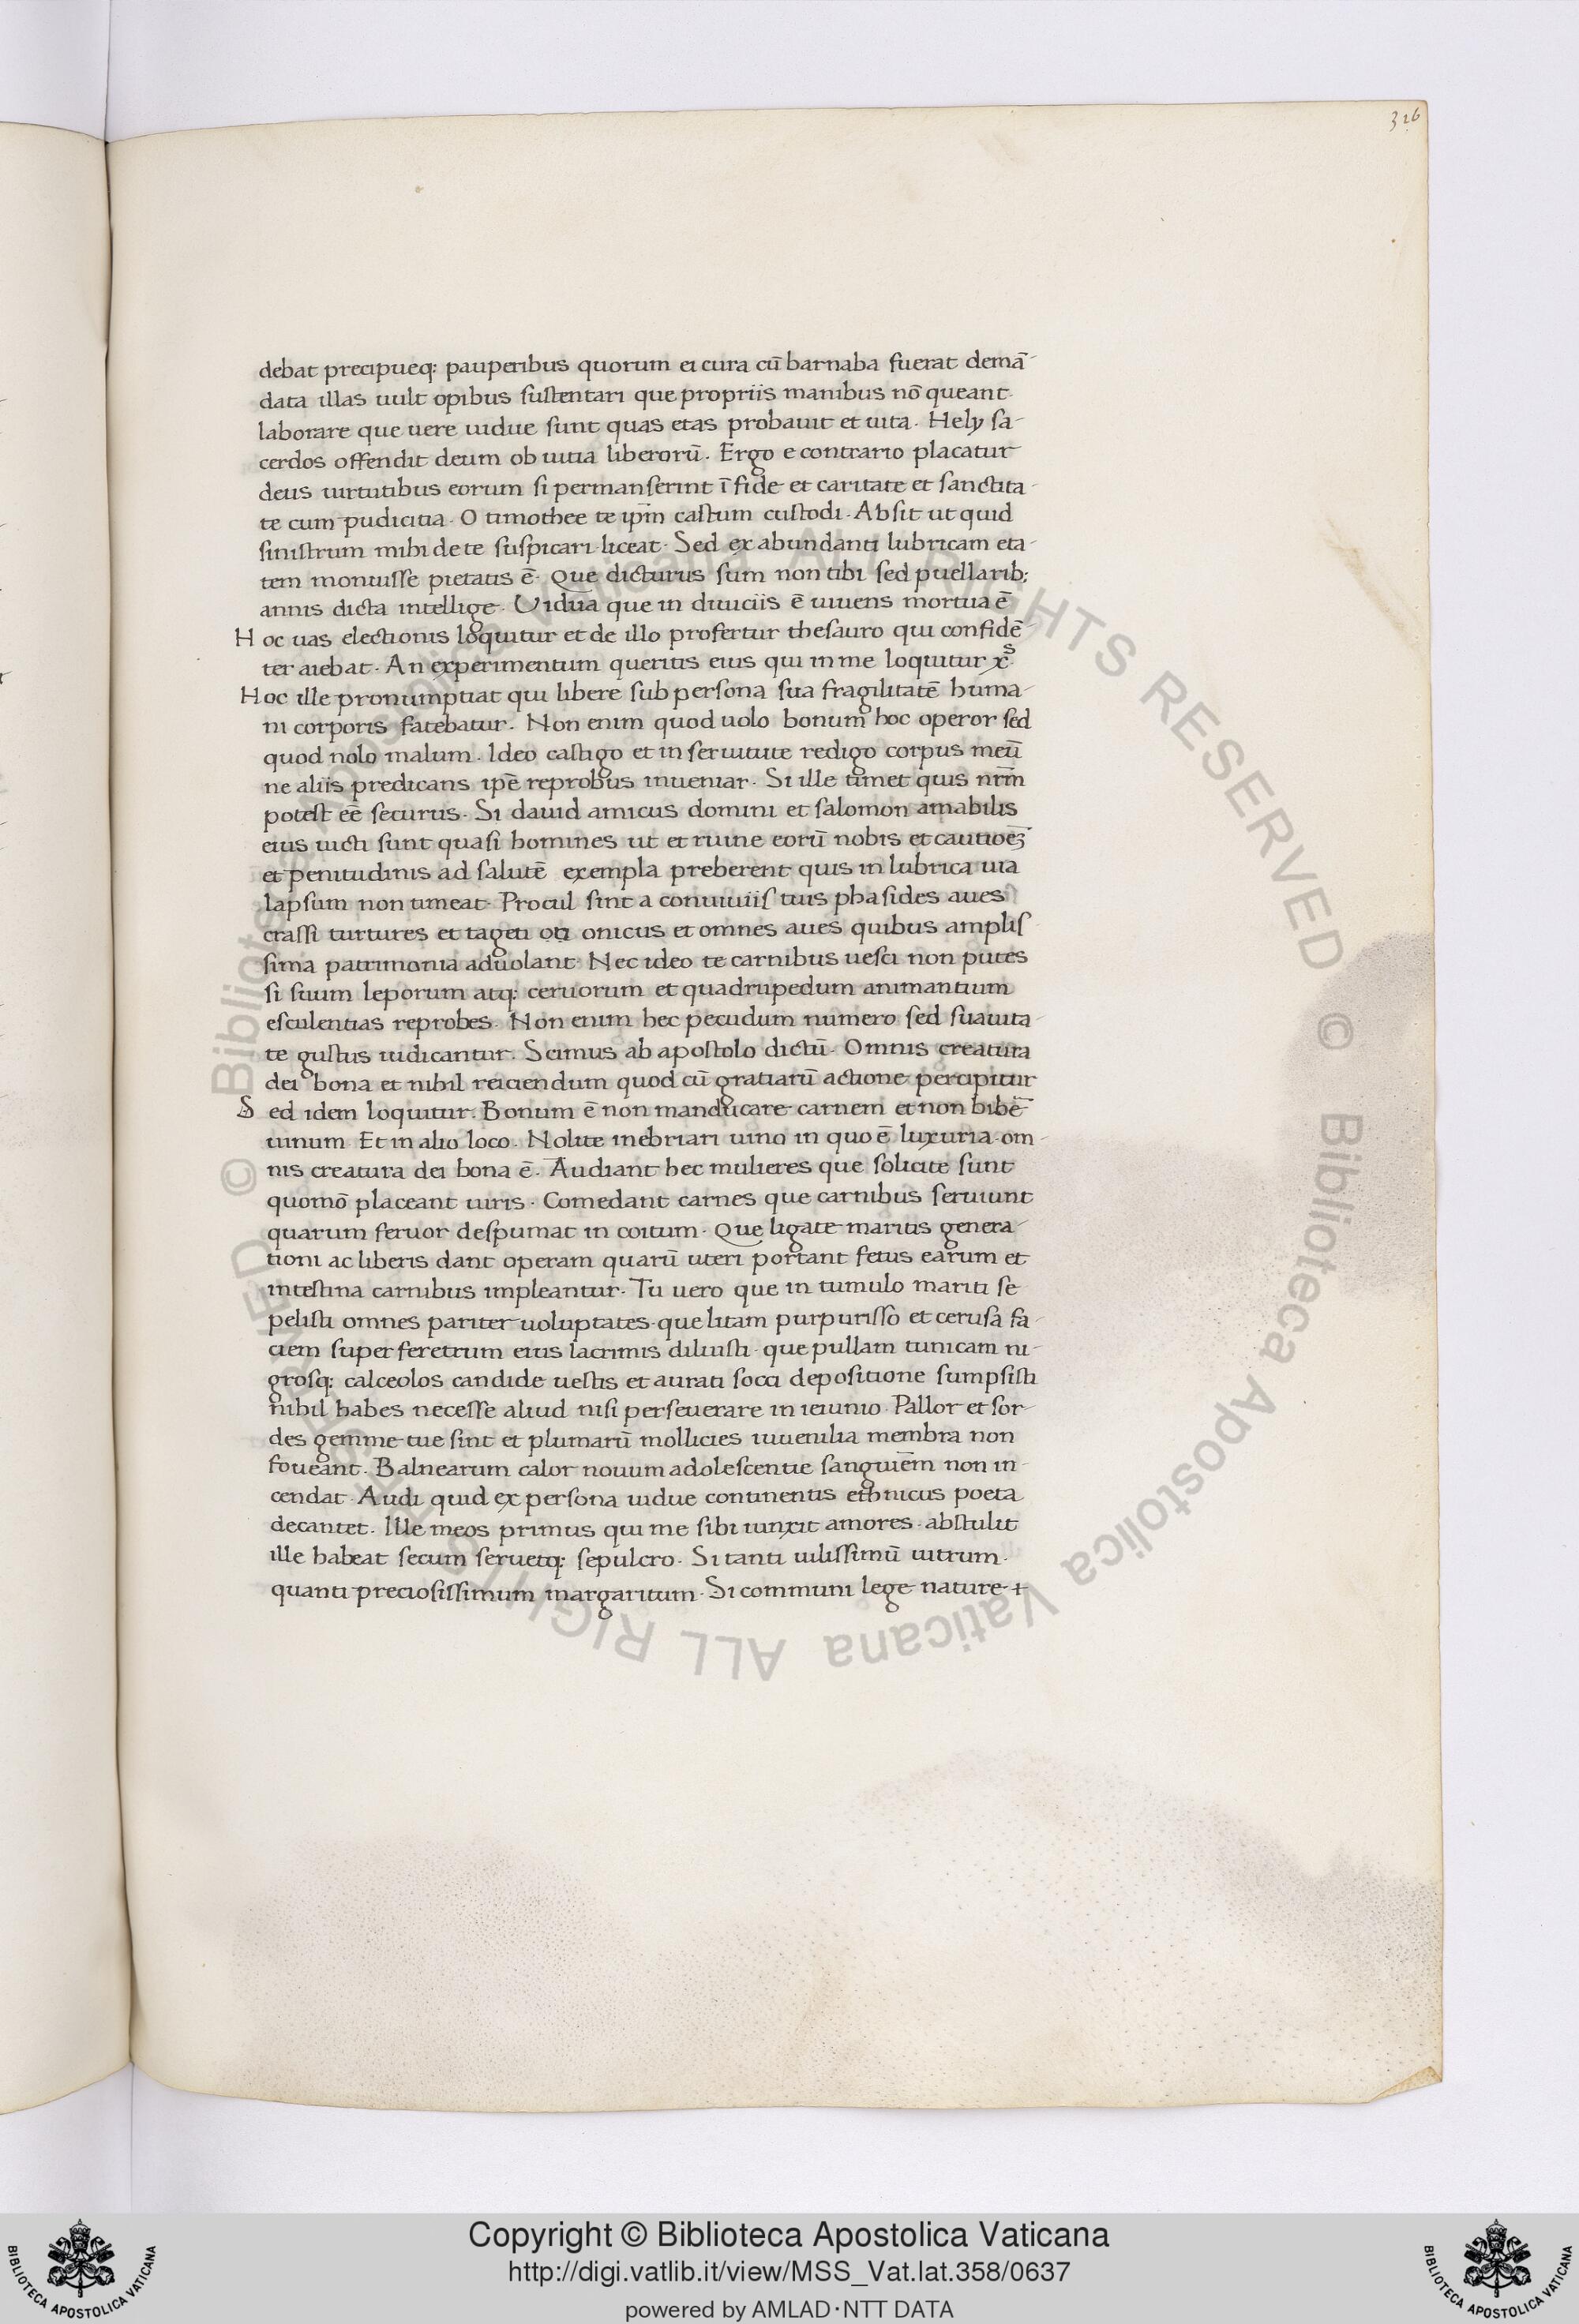 326
debat precipueq: pauperibus quorum ei cura cū barnaba fuerat demā-
data illas uult opibus sustentari que propriis manibus nō queant
laborare que uere uidue sunt quas etas probauit et uita. Hely sa-
cerdos offendit deum ob uitia liberorū. Ergo e contrario placatur
deus uirtutibus eorum si permanserint ī fide et caritate et sanctita-
te cum pudicitia. O timothee te ip̄m castum custodi. Absit ut quid
sinistrum mihi de te suspicari liceat. Sed ex abundanti lubricam eta-
tem monuisse pietatis ē. Que dicturus sum non tibi sed puellarib:
annis dicta intellige. Uidua que in diuiciis ē uiuens mortua ē
Hoc uas electionis loquitur et de illo profertur thesauro qui confidē-
ter aiebat. An experimentum queritis eius qui in me loquitur x̄s.
Hoc ille pronumptiat qui libere sub persona sua fragilitatē huma-
ni corporis fatebatur. Non enim quod uolo bonum hoc operor sed
quod nolo malum. Ideo castigo et in seruitute redigo corpus meū
ne aliis predicans ipē reprobus inueniar. Si ille timet quis nr̄m
potest eē securus. Si dauid amicus domini et salomon amabilis
eius uicti sunt quasi homines ut et ruine eorū nobis et cautioēȝ
et penitudinis ad salutē exempla preberent quis in lubrica uia
lapsum non timeat. Procul sint a conuiuiis tuis phasides aues
crassi turtures et tageti oti onicus et omnes aues quibus amplis
sima patrimonia aduolant. Nec ideo te carnibus uesci non putes
si suum leporum atq: ceruorum et quadrupedum animantium
esculentias reprobes. Non enim hec pecudum numero sed suauita-
te gustus iudicantur. Scimus ab apostolo dictū. Omnis creatura
dei bona et nihil reiciendum quod cū gratiarū actione percipitur
Sed idem loquitur. Bonum ē non manducare carnem et non bibē-
uinum Et in alio loco. Nolite inebriari uino in quo ē luxuria. om-
nis creatura dei bona ē. Audiant hec mulieres que solicite sunt
quomō placeant uiris. Comedant carnes que carnibus seruiunt
quarum feruor despumat in coitum. Que ligate maritis genera-
tioni ac liberis dant operam quarū uteri portant fetus earum et
intestina carnibus impleantur. Tu uero que in tumulo mariti se
pelisti omnes pariter uoluptates. que litam purpurisso et cerusa fa-
ciem super feretrum eius lacrimis diluisti. que pullam tunicam ni-
grosq: calceolos candide uestis et aurati socci depositione sumpsisti
nihil habes necesse aliud nisi perseuerare in ieiunio. Pallor et sor-
des gemme tue sint et plumarū mollicies iuuenilia membra non
foueant. Balnearum calor nouum adolescentie sanguiēm non in-
cendat. Audi quid ex persona uidue continentis ethnicus poeta
decantet. Ille meos primus qui me sibi iunxit amores. abstulit
ille habeat secum seruetq: sepulcro. Si tanti uilissimū uitrum.
quanti preciosissimum margaritum. Si communi lege nature +
© Biblioteca Apostolica Vaticana ALL RIGHTS RESERVED © Biblioteca Apostolica Vaticana ALL RIGHTS RESERVED
Copyright © Biblioteca Apostolica Vaticana
http://digi.vatlib.it/view/MSS_Vat.lat.358/0637
powered by AMLAD·NTT DATA
BIBLIOTECA APOSTOLICA VATICANA
BIBLIOTECA APOSTOLICA VATICANA